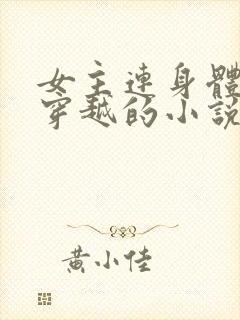 女主連身體
穿越的小説
黄小佳